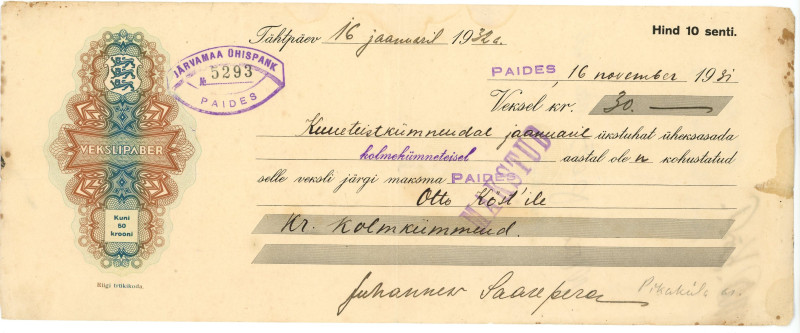 Tähtpäev 16 jaanuaril 1932 a.
Hind 10 senti.
JÄRVAMAA ÜHISPANK
№ 5293
PAIDES
PAIDES, 16 november 1931
Veksel kr. 30.—
Kuueteistkümnendal jaanuaril ükstuhat üheksasada
kolmekümneteisel aastal ole n kohustatud
selle veksli järgi maksma PAIDES
MAKSTUD
Otto Kost'ile
Kr. Kolmkümmend.
Juhannes Saarepera
VEKSLIPABER
Kuni
50
krooni
Riigi trükikoda.